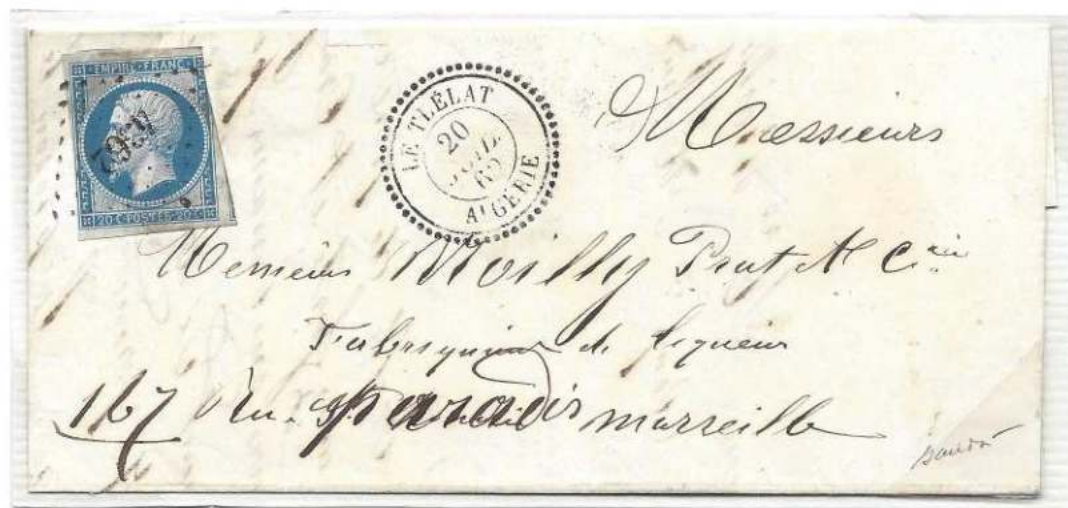 EMPIRE FRANC
20 C POSTES 20 C
LE TLÉLAT
20
JUIL
62
ALGERIE
Messieurs
Messieurs Noilly Prat & Cie
Fabriquant de liqueur
167 Rue paradis marseille